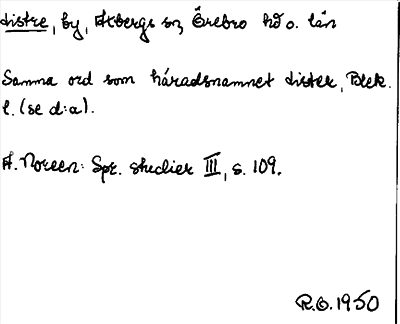 Listre, by, Axbergs sn, Örebro hd o. län
Samma ord som häradsnamnet Lister, Blek.
l. (se d:a).
A. Noreen: Spr. studier III, s. 109.
R.O. 1950